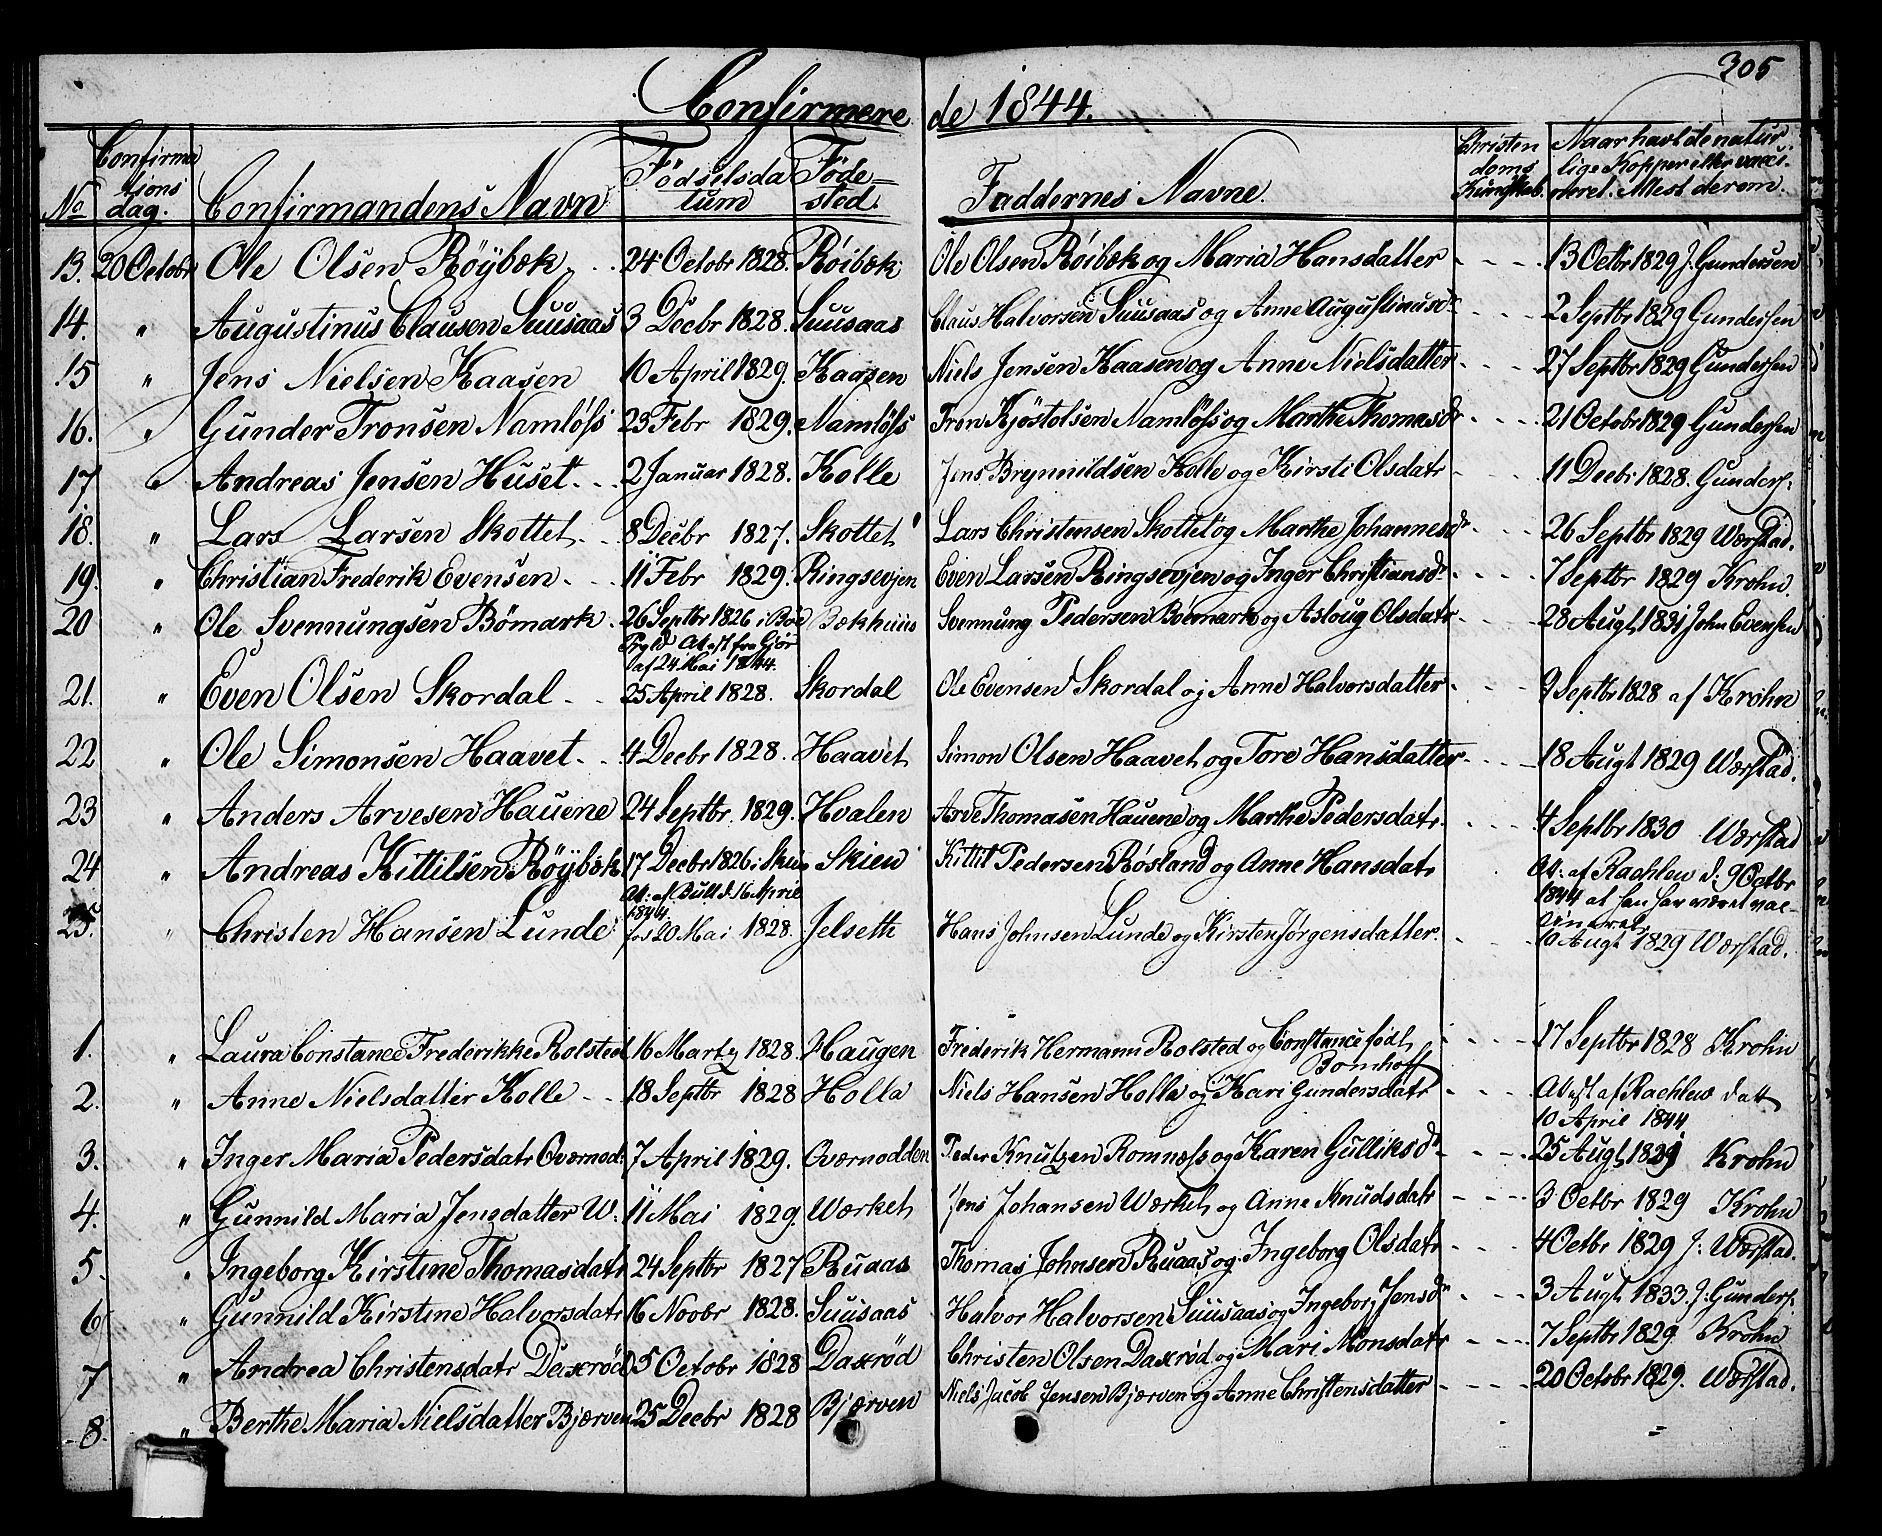 305
Confirmere de 1844.
No Confirmationsdag. Confirmandens Navn Fødselsdatum Fødested Faddernes Navne. Christendoms Kundskab. Naar havt de naturlige Kopper eller vaccineret. Attest derom.
13. 20 Octobr Ole Olsen Röybæk 24 Octobr 1828. Röibæk Ole Olsen Röibæk og Maria Hansdatter 13 Octbr 1829 J. Gundersen
14. " Augustinus Clausen Suusaas 3 Decbr 1828. Suusaas Claus Halvorsen Suusaas og Anne Augustinusdr 2 Septbr 1829 Gundersen
15 " Jens Nielsen Kaasen 10 April 1829. Kaasen Niels Jensen Kaasen og Anne Nielsdatter 27 Septbr 1829 Gundersen
16. " Gunder Tronsen Namløss 23 Febr 1829. Namløss Tron Kjøstolsen Namløss og Marthe Thomasdr 21 Octobr 1829 Gundersen
17 " Andreas Jensen Huset 2 Januar 1828. Kolle Jens Brynnildsen Kolle og Kirsti Olsdatr 11 Decbr 1828. Gunders:
18. " Lars Larsen Skottet 8 Decbr 1827. Skottet Lars Christensen Skottet og Marthe Johannesdr 26 Septbr 1829 Wærstad.
19. " Christian Frederik Evensen 11 Febr 1829. Ringsevjen Even Larsen Ringsevjen og Inger Christiansdr 7 Septbr 1829 Krohn.
20 " Ole Svennungsen Bömark 26 Septbr 1826 i Boe Bækhuus Svennung Pedersen Böemark og Asloug Olsdatr 28 Augt 1831 John Evensen
Attest fra
af 24 Mai 1844.
21. " Even Olsen Skordal 25 April 1828. Skordal Ole Evensen Skordal og Anne Halvorsdatter 9 Septbr 1828 af Krohn
22 " Ole Simonsen Haavet 4 Decbr 1828. Haavet Simon Olsen Haavet og Tore Hansdatter 18 Augt 1829 Wærstad.
23 " Anders Arvesen Hauene 24 Septbr 1829. Hvalen Arve Thomasen Hauene og Marthe Pedersdatr. 4 Septbr 1830 Wærstad
24 " Andreas Kittilsen Röybæk 17 Decbr 1826 i Skien Skien Kittil Pedersen Røsland og Anne Hansdatr Att: af Rachlew d: 9 Octbr
Att: af Bull d. 16 April 1844 at han har været vac-
1844. cineret
25. " Christen Hansen Lunde 20 Mai 1828. Jelseth Hans Johnsen Lunde og Kirsten Jørgensdatter. 10 Augt 1829 Wærstad.
1. " Laura Constance Frederikke Rolsted 16 Marty 1828. Haugen Frederik Hermann Rolsted og Constance født 17 Septbr 1828 Krohn
Bomhoff
2. " Anne Nielsdatter Kolle 18 Septbr 1828 Holla Niels Hansen Holla og Kari Gundersdatr Attest af Rachlew datt
10 April 1844
3. " Inger Maria Pedersdatr Overnod: 7 April 1829. Overnodden Peder Knutzen Romnæss og Karen Gulliksdr 25 Augt 1829 Krohn
4. " Gunnild Maria Jensdatter W. 11 Mai 1829. Wærket Jens Johansen Wærket og Anne Knudsdatr 3 Octbr 1829 Krohn
5. " Ingeborg Kirstine Thomasdatr 24 Septbr 1827 Ruaas Thomas Johnsen Ruaas og Ingeborg Olsdatr 4 Octbr 1829 J: Wærstad.
6 " Gunnild Kirstine Halvorsdatr 16 Novbr 1828. Suusaas Halvor Halvorsen Suusaas og Ingeborg Jensdr 3 Augt 1833. J: Gunders.
7 " Andrea Christensdatr Daxröd 5 Octobr 1828 Daxröd Christen Olsen Daxrød og Mari Monsdatr 7 Septbr 1829. Krohn
8. " Berthe Maria Nielsdatter Bjærven 25 Decbr 1828 Bjærven Niels Jacob Jensen Bjærven og Anne Christensdatter 20 Octobr 1829. Wærstad.